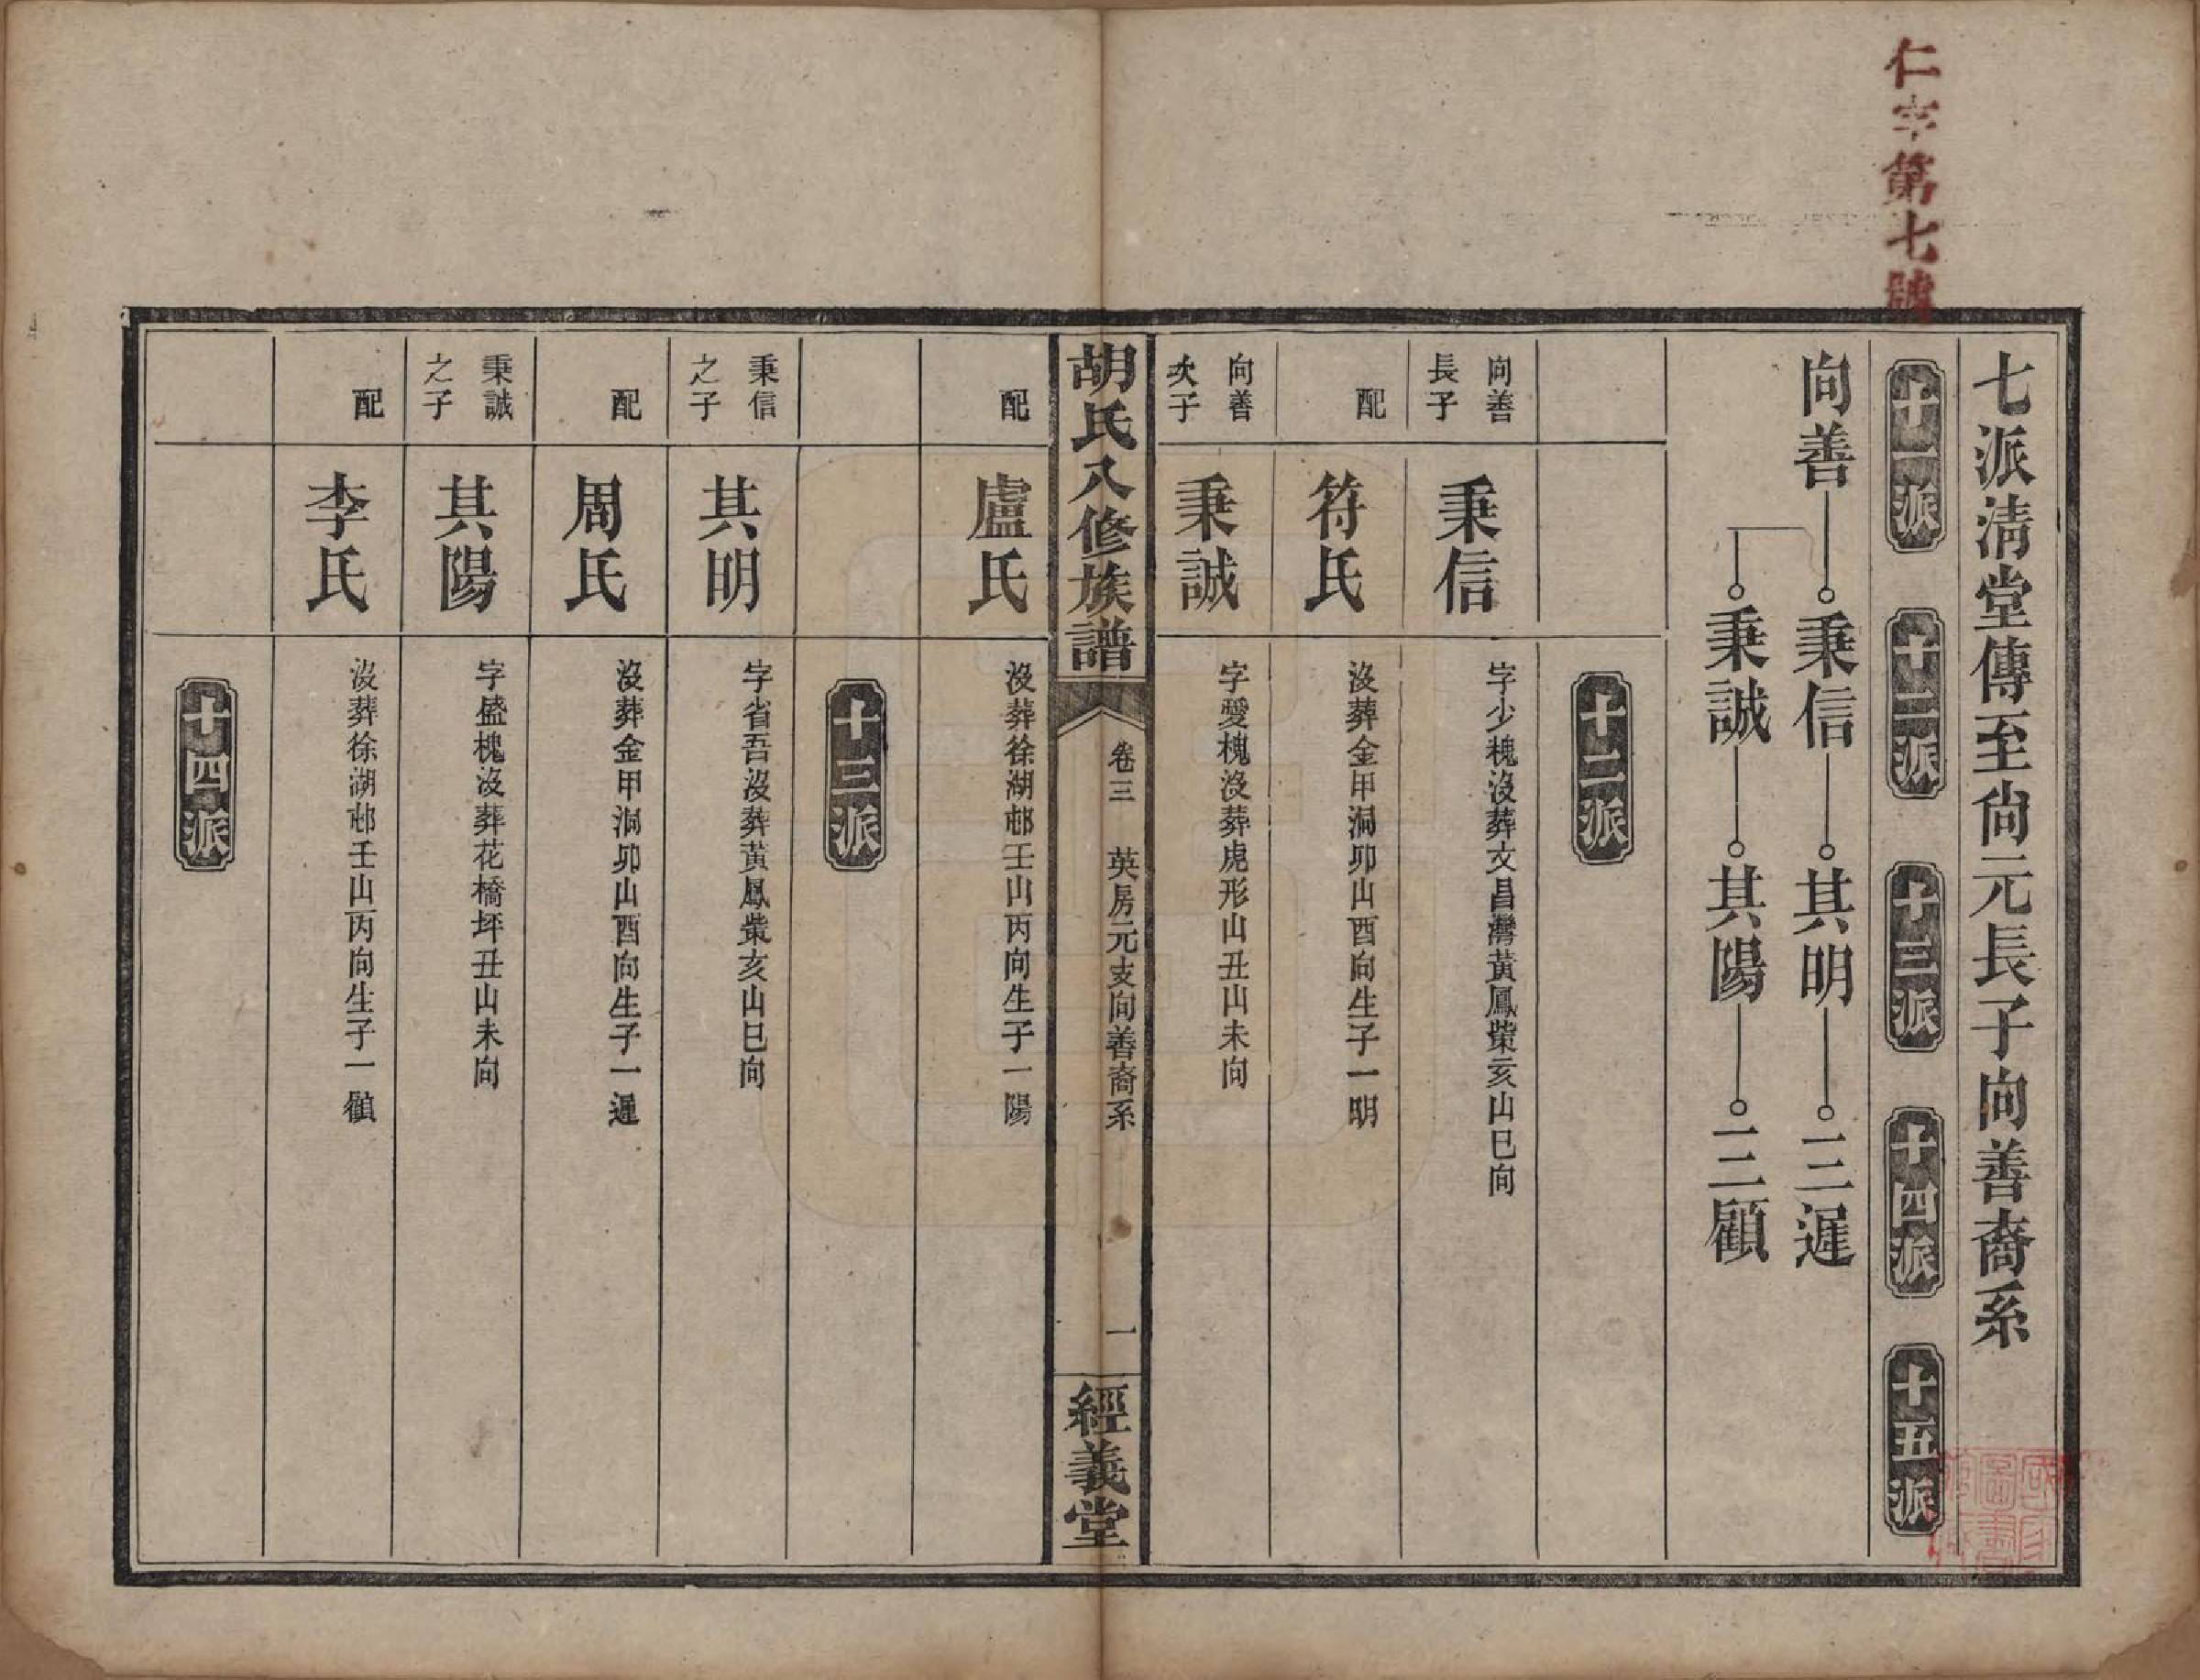 仁字第七號
七派淸堂傳至尙元長子向善裔系
十一派 十二派 十三派 十四派 十五派
向善 秉信 其明 三遲
秉誠 其陽 三顧
十二派
向善長子 秉信 字少槐沒葬文昌灣黃鳳柴亥山巳向
配 符氏 沒葬金甲洞卯山酉向生子一明
向善次子 秉誠 字愛槐沒葬虎形山丑山未向
胡氏八修族譜 卷三 英房元支向善裔系 一 經義堂
配 盧氏 沒葬徐湖邨壬山丙向生子一陽
十三派
秉信之子 其明 字省吾沒葬黃鳳柴亥山巳向
配 周氏 沒葬金甲洞卯山酉向生子一遲
秉誠之子 其陽 字盛槐沒葬花橋坪丑山未向
配 李氏 沒葬徐湖邨壬山丙向生子一顧
十四派